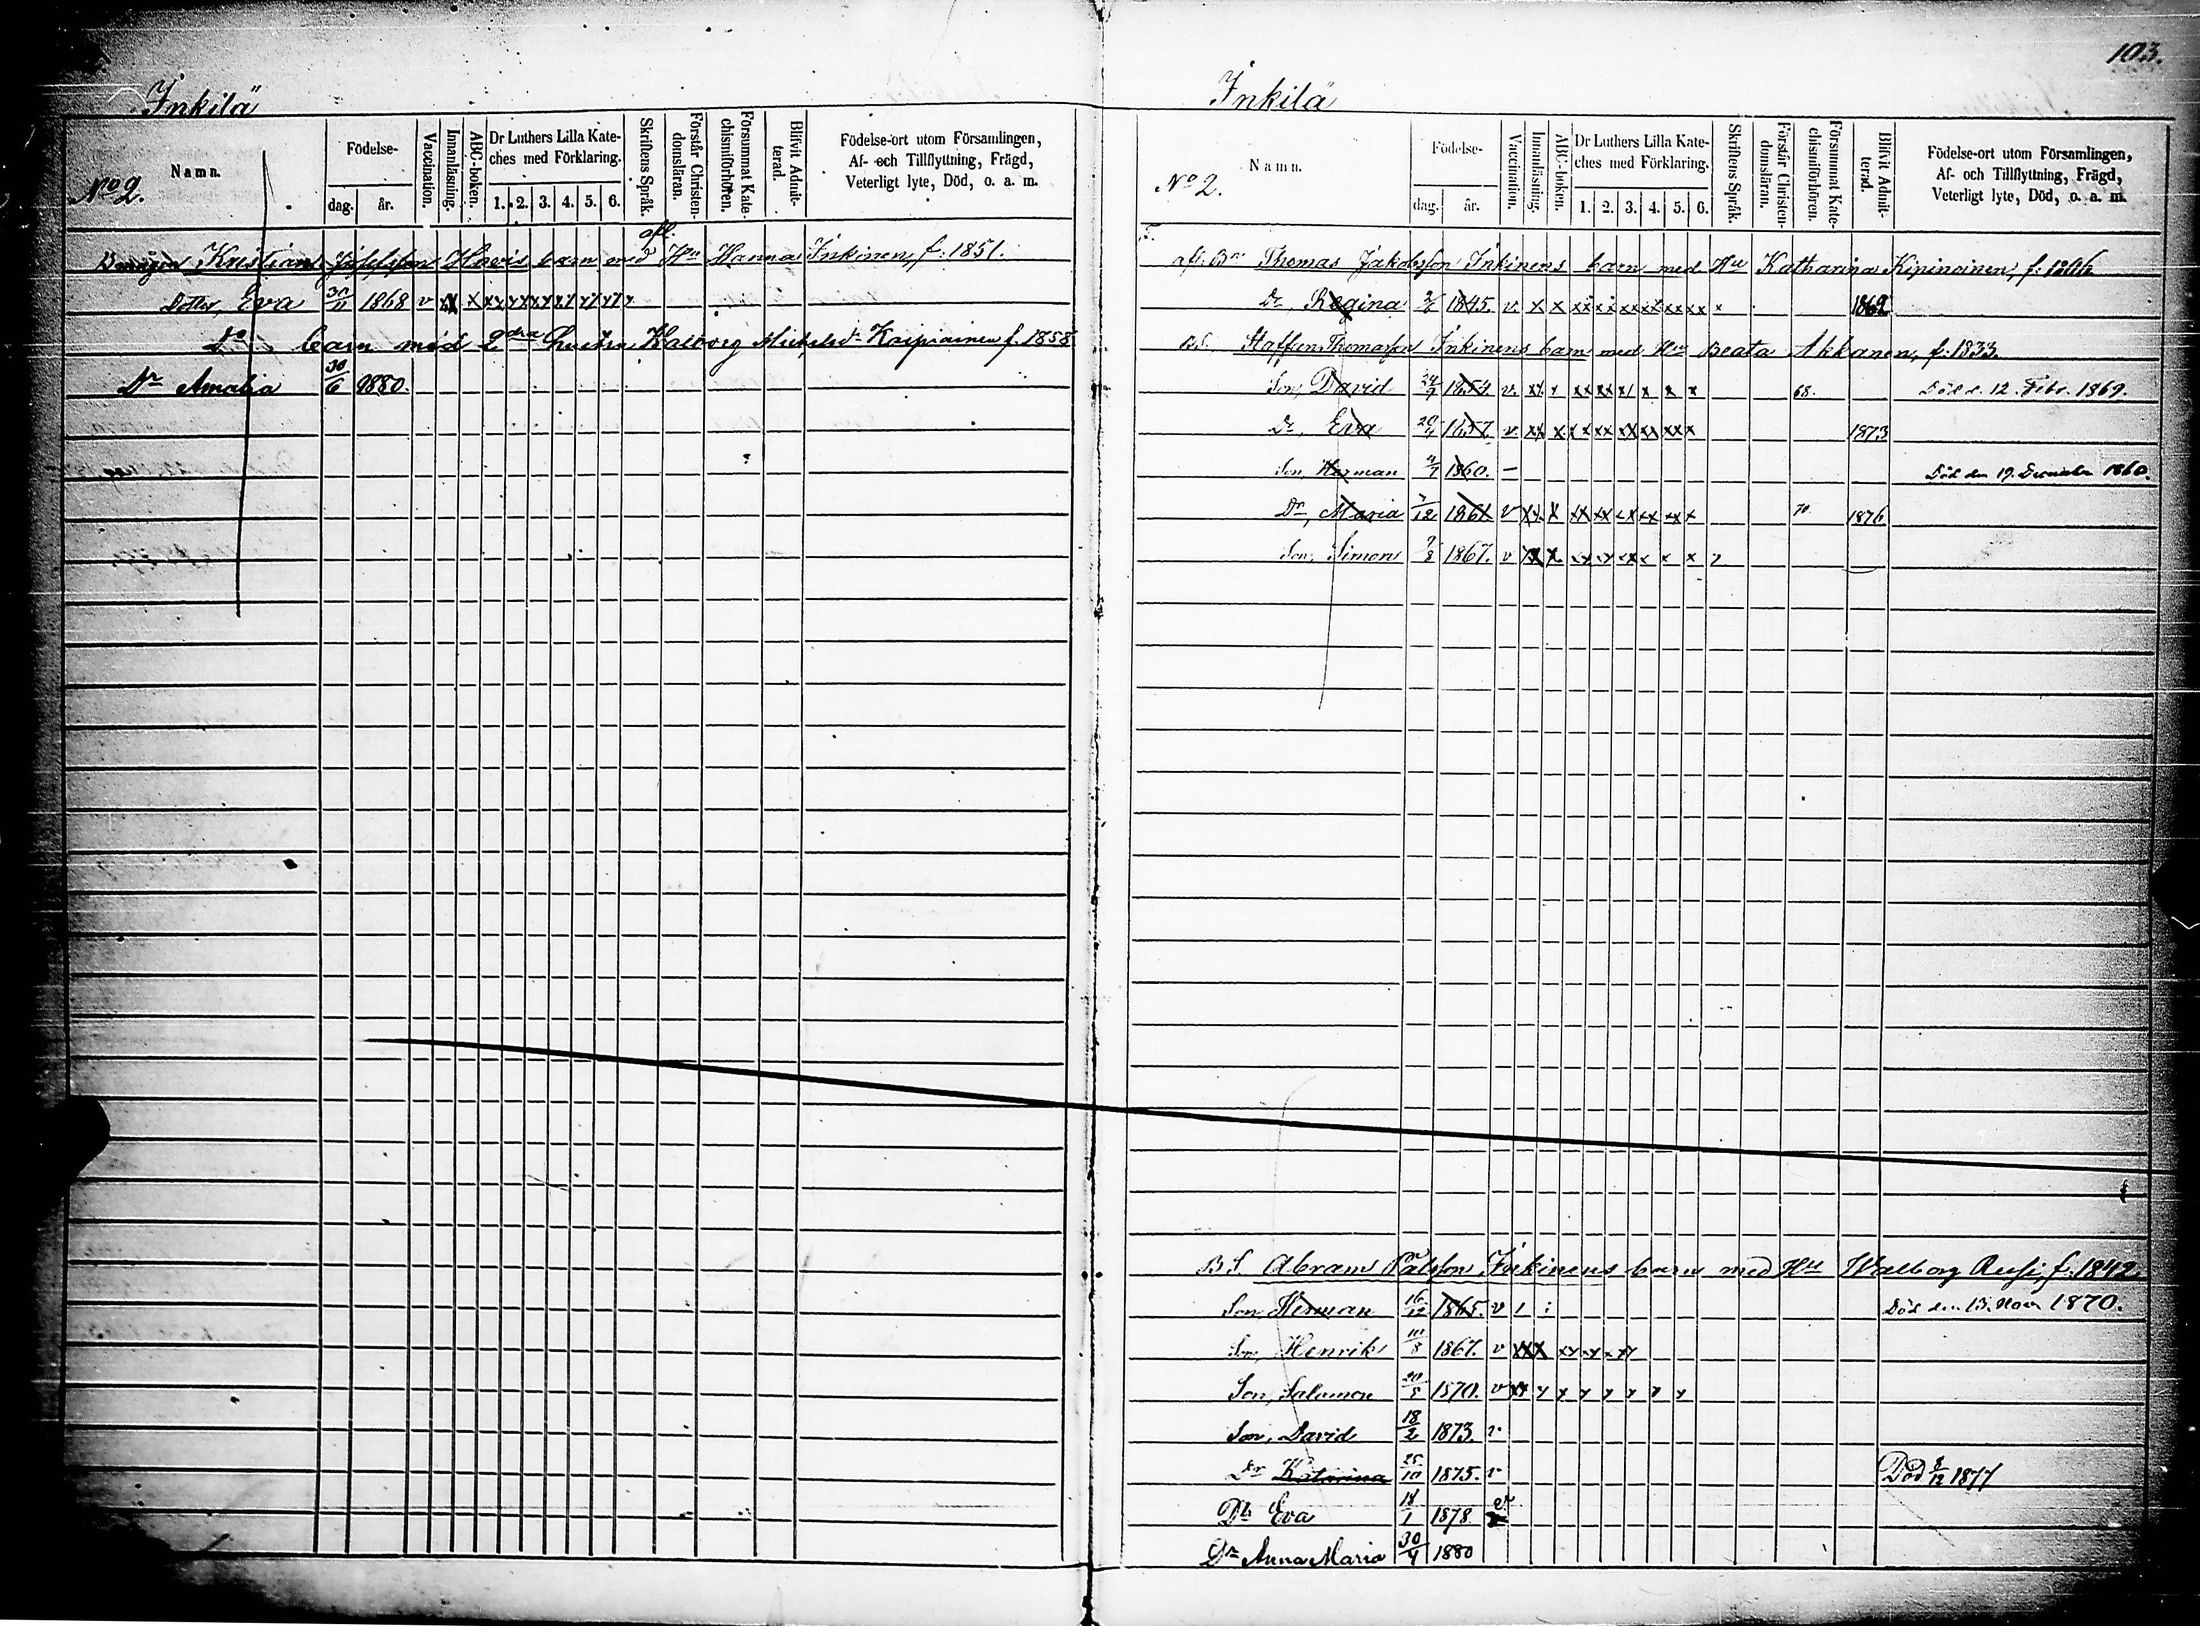 103.
Inkilä
No 2.
Namn.
Födelse-
dag. år.
Vaccination.
Innanläsning.
ABC-boken.
Dr Luthers Lilla Kate-
ches med Förklaring.
1. 2. 3. 4. 5. 6.
Skriftens Språk.
Förstår Christen-
domsläran.
Försummat Kate-
chismiförhören.
Blifvit Admit-
terad.
Födelse-ort utom Församlingen,
Af- och Tillflyttning, Frägd,
Veterligt lyte, Död, o. a. m.
afl.
Kristian Josefsson Hovis barn med Hu Hanna Inkinen, f. 1851.
Dotter, Eva 30/11 1868 v xx x
Dr barn med 2dra hustrun Walborg Michelsdr Kaipiainen f. 1858
Dr Amalia 30/6 1880.
Inkilä
No 2.
Namn.
Födelse-
dag. år.
Vaccination.
Innanläsning.
ABC-boken.
Dr Luthers Lilla Kate-
ches med Förklaring.
1. 2. 3. 4. 5. 6.
Skriftens Språk.
Förstår Christen-
domsläran.
Försummat Kate-
chismiförhören.
Blifvit Admit-
terad.
Födelse-ort utom Församlingen,
Af- och Tillflyttning, Frägd,
Veterligt lyte, Död, o. a. m.
afl. Bn Thomas Jakobsson Inkinens barn med Hu Katharina Kipinoinen, f.
Dr, Regina 1845. v. x x xx xx xx xx xx xx x 1862
BS. Staffan Thomasson Inkinens barn med Hu Beata Akkanen, f. 1833.
Son, David 24/9 1854. v. xx x xx xx x/ x x x 68. Död d. 12. Febr. 1869.
Dr, Eva 1857. v. xx x xx xx xx xx xx x 1873
Son, Herman 1860. — Död den 19. December 1860.
Dr, Maria /12 1861 v xx x xx xx xx xx xx x 70. 1876
Son, Simon /8 1867. v xx x
BS. Abram Pålsson Inkinens barn med Hu Walborg Rusi, f. 1842
Son, Herman 16/12 1865. v 1 : Död den 13. Nov. 1870.
Son, Henrik 10/8 1867. v xxx
Son, Salomon 20/5 1870. v xx
Son, David 18/2 1873. v
Dr Katarina 25/10 1875. v Död 8/12 1877
Dr Eva 18/1 1878 v
Dr Anna Maria 30/4 1880